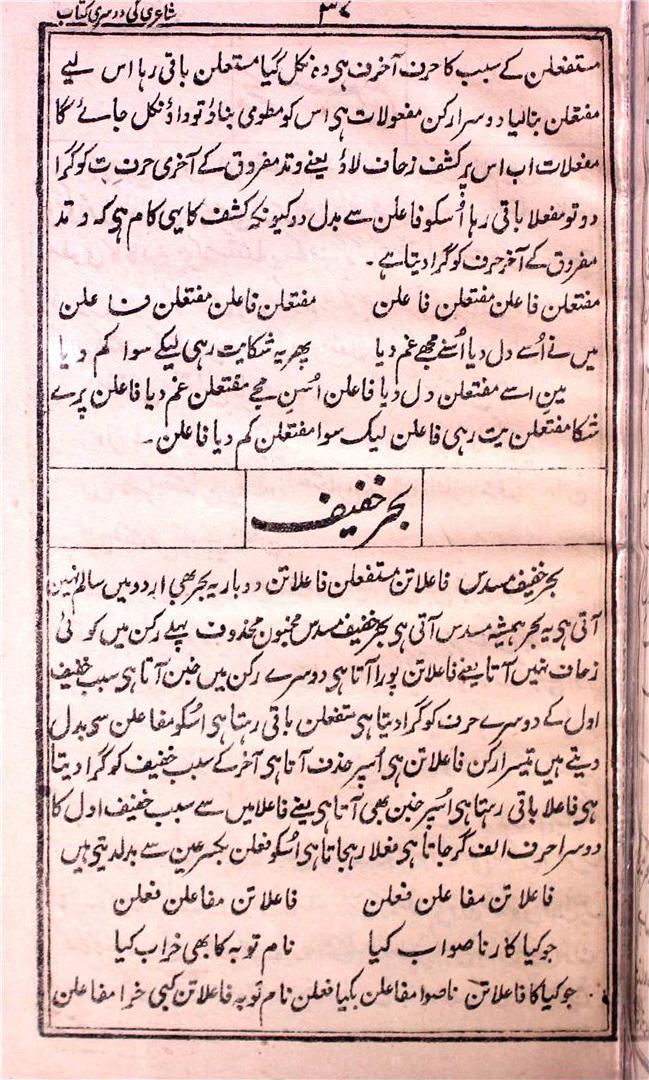 ۳۸ شاعری کی دوسری کتاب
مستفعلن کے سبب کا حرف آخر ف ہی وہ نکل گیا مستعلن باقی رہا اس لیے
مفتعلن بنالیا دوسرا رکن مفعولات ہی اس کو مطوی بناؤ تو واؤ نکل جائے گا
مفعلات اب اس پر کشف زحاف لاؤ یعنے وتد مفروق کے آخری حرف ت کو گرا
دو تو مفعلا باقی رہا اُسکو فاعلن سے بدل دو کیونکہ کشف کا یہی کام ہی کہ وتد
مفروق کے آخر حرف کو گرا دیتا ہے۔
مفتعلن فاعلن مفتعلن فاعلن مفتعلن فاعلن مفتعلن فاعلن
میں نے اُسے دل دیا اُسنے مجھے غم دیا پھر یہ شکایت رہی لیکے سوا کم دیا
مین اسے مفتعلن دل دیا فاعلن اُسنِ مجے مفتعلن غم دیا فاعلن پرے
شکا مفتعلن یت رہی فاعلن لیک سوا مفتعلن کم دیا فاعلن۔
بحر خفیف
بحر خفیف مسدس فاعلاتن مستفعلن فاعلاتن دوبار یہ بحر بھی اردو میں سالم نہیں
آتی ہی یہ بحر ہمیشہ مسدس آتی ہی بحر خفیف مسدس مخبون محذوف پہلے رکن میں کوئی
زحاف نہیں آتا یعنے فاعلاتن پورا آتا ہی دوسرے رکن میں خبن آتا ہی سبب خفیف
اول کے دوسرے حرف کو گرا دیتا ہی متفعلن باقی رہتا ہی اسکو مفاعلن سی بدل
دیتے ہیں تیسرا رکن فاعلاتن ہی اُسپر حذف آتا ہی آخر کے سبب خفیف کو گرا دیتا
ہی فاعلا باقی رہتا ہی اُسپر خبن بھی آتا ہی یعنے فاعلا میں سے سبب خفیف اول کا
دوسرا حرف الف گر جاتا ہی فعلا رہجاتا ہی اُسکو فعلن بکسر عین سے بدلدیتی ہیں
فاعلاتن مفاعلن فعلن فاعلاتن مفاعلن فعلن
جو کیا کار ناصواب کیا نام توبہ کا بھی خراب کیا
جو کیا کا فاعلاتن ناصوا مفاعلن بکیا فعلن نام توبہ فاعلاتن کبی خرا مفاعلن